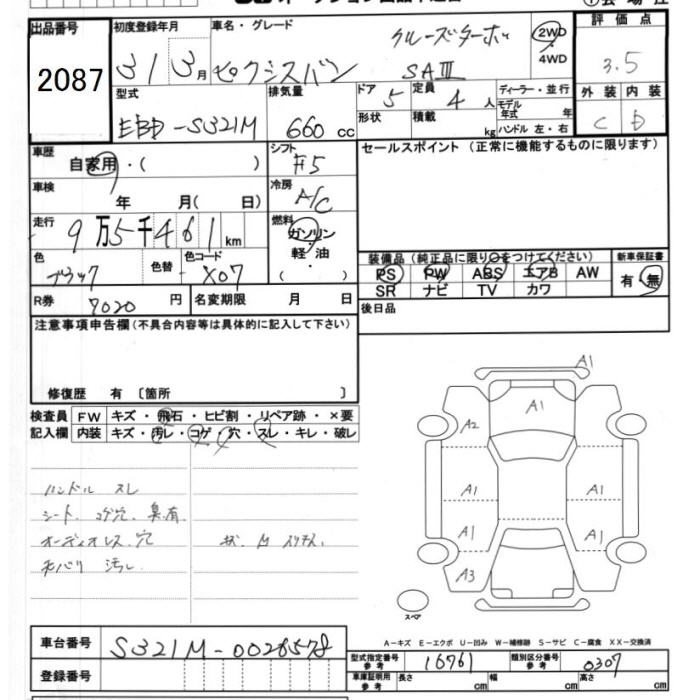 出品番号 初度登録年月 車名・グレード クルーズターボ 2WD 評価点
2087 31 3月 ピクシスバン SAIII ・4WD 3.5
型式 排気量 ドア 5 定員 4人 ディーラー・並行 外装 内装
EBD-S321M 660cc 形状 積載 kg モデル年式 年 C D
ハンドル 左・右
車歴 シフト セールスポイント (正常に機能するものに限ります)
自家用・( ) F5
車検 冷房
年 月( 日) A/C
走行 9万5千461km 燃料
ガソリン
・
軽・油
( )
色 色替 色コード 装備品(純正品に限り○をつけてください) 新車保証書
ブラック X07 PS PW ABS エアB AW 有・無
R券 7020円 名変期限 月 日 SR ナビ TV カワ
注意事項申告欄(不具合内容等は具体的に記入して下さい) 後日品
修復歴 有 〔箇所 〕
検査員 FW キズ・飛石・ヒビ割・リペア跡・×要
記入欄 内装 キズ・汚レ・コゲ・穴・スレ・キレ・破レ
ハンドル スレ
シート、コゲ穴、臭有
オーディオレス、穴
汚レ
A1
A1
A2
A1 A1
A1 A1
A3
スペア
A-キズ E-エクボ U-凹み W-補修跡 S-サビ C-腐食 XX-交換済
車台番号 S321M-0026578 型式指定番号 参考 16761 類別区分番号 参考 0307
登録番号 車庫証明用 参考 長さ cm 幅 cm 高さ cm